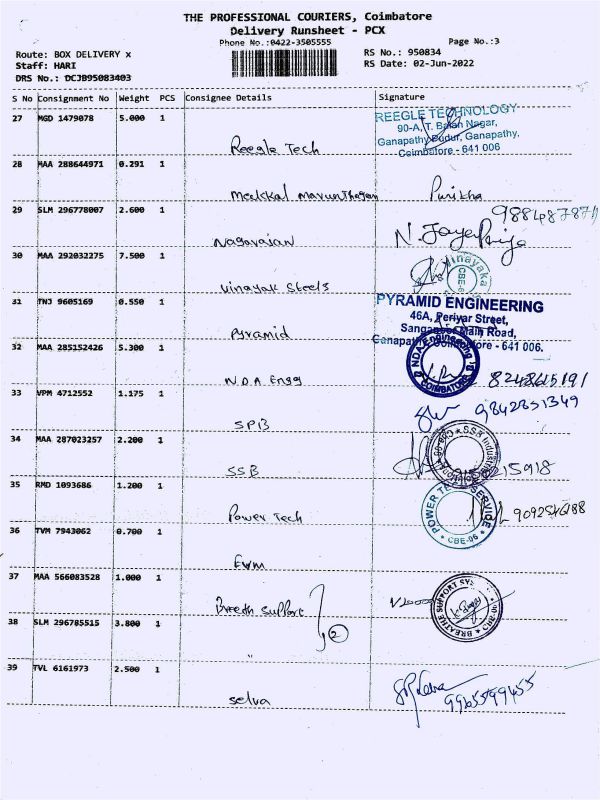 THE PROFESSIONAL COURIERS, Coimbatore
Delivery Runsheet - PCX
Phone No.:0422-3505555
Page No.:3
Route: BOX DELIVERY x
RS No.: 950834
Staff: HARI
RS Date: 02-Jun-2022
DRS No.: DCJB95083403
S No Consignment No Weight PCS Consignee Details Signature
27 MGD 1479078 5.000 1
REEGLE TECHNOLOGY
90-A, T. Balan Nagar,
Ganapathy Pudur, Ganapathy,
Coimbatore - 641 006
Reegle Tech
28 MAA 288644971 0.291 1
29 SLM 296778007 2.600 1
Nagarajan N. JayaPriya
30 MAA 292032275 7.500 1
Vinayaka
CBE-6
Vinayak Steels
31 TNJ 9605169 0.550 1
PYRAMID ENGINEERING
46A, Periyar Street,
Main Road,
Coimbatore - 641 006.
Pyramid
32 MAA 285152426 5.300 1
NDA Engineering
COIMBATORE
N.D.A. Engg
33 VPM 4712552 1.175 1
9842851349
SPB
34 MAA 287023257 2.200 1
SSB
35 RMD 1093686 1.200 1
POWER SERVICE
CBE-06
Power Tech
36 TVM 7943062 0.700 1
37 MAA 566083528 1.000 1
BREATHE SUPPORT
Breath Support
38 SLM 296785515 3.800 1
2
"
39 TVL 6161973 2.500 1
9965599455
Selva